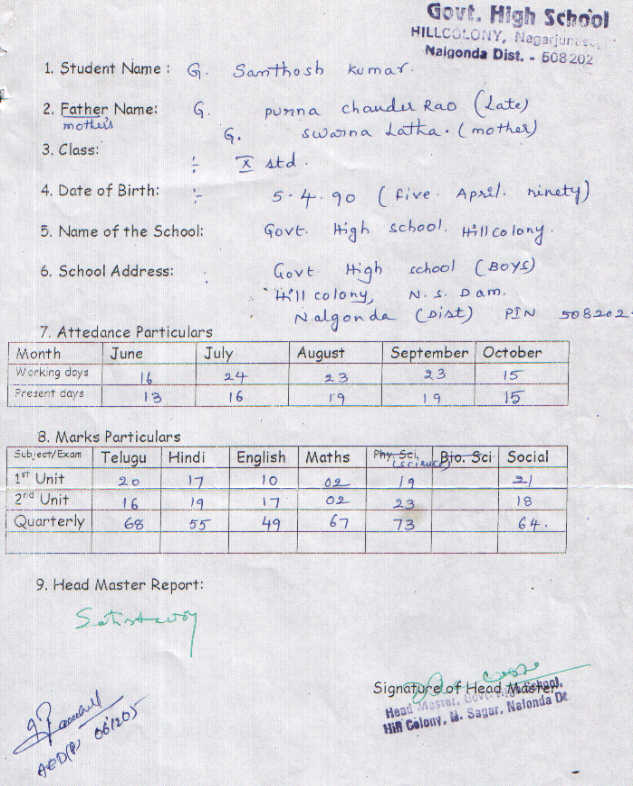 Govt. High School
HILLCOLONY, Nagarjuna
Nalgonda Dist. - 508202
1. Student Name : G. Santhosh kumar.
2. Father Name: G. purna chander Rao (Late)
mother's G. swarna Latha. (mother)
3. Class: :- X std.
4. Date of Birth: :- 5-4-90 (five. April. ninety)
5. Name of the School: Govt. High school. Hill colony.
6. School Address: Govt High school (Boys)
Hill colony, N. S. Dam.
Nalgonda (Dist) PIN 508202.
7. Attedance Particulars
Month June July August September October
Working days 16 24 23 23 15
Present days 13 16 19 19 15
8. Marks Particulars
Subject/Exam Telugu Hindi English Maths Phy. Sci. (science) Bio. Sci Social
1ST Unit 20 17 10 02 19 21
2nd Unit 16 19 17 02 23 18
Quarterly 68 55 49 67 73 64.
9. Head Master Report:
Satisfactory
Signature of Head Master
Head Master, Govt. High School,
Hill Colony, N. Sagar, Nalonda Dt.